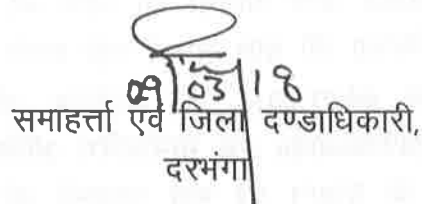 09/03/18
समाहर्त्ता एवं जिला दण्डाधिकारी,
दरभंगा